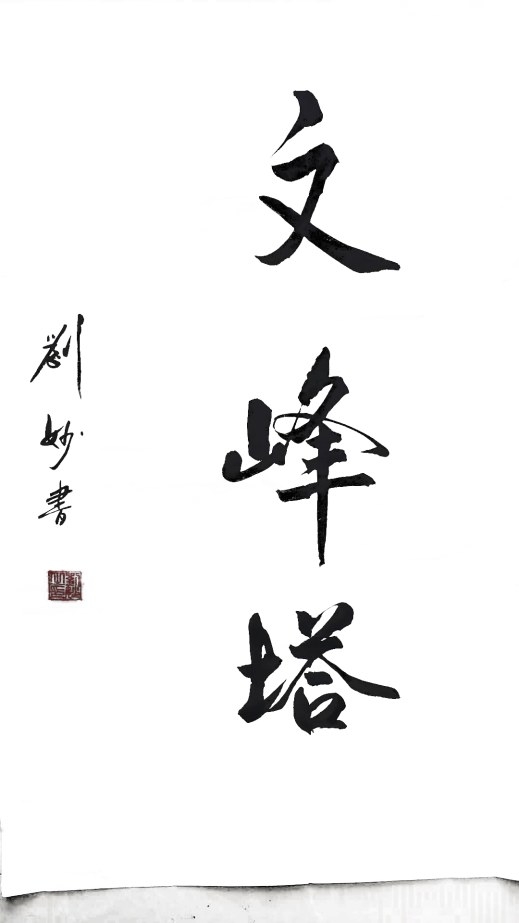 文峰塔
劉妙書